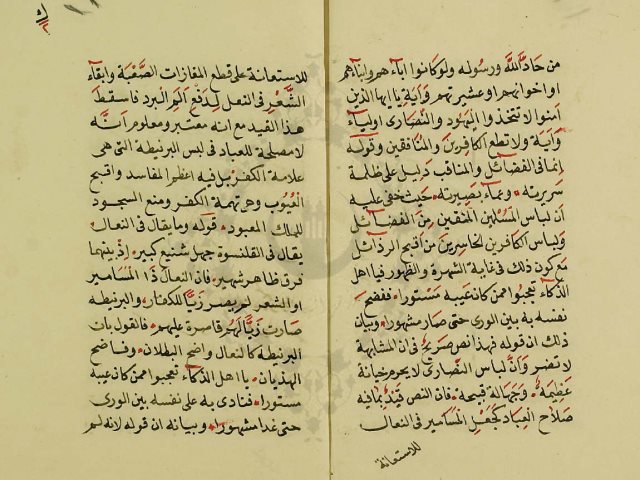 من حاد الله ورسوله ولو كانوا اباءهم وابناءهم
او اخوانهم او عشيرتهم وآية يا ايها الذين
آمنوا لا تتخذوا اليهود والنصارى اولياء
وآية ولا تطع الكافرين والمنافقين وقوله
انما فى الفضائل والمناقب دليل على ظلمة
سريرته وعماء بصيرته حيث خفى عليه
ان لباس المسلمين المتقين من الفضائل
ولباس الكافرين الخاسرين من اقبح الرذائل
مع كون ذلك فى غاية الشهرة والظهور فيا اهل
الذكاء تعجبوا ممن كان عيبه مستورا ففضح
نفسه به بين الورى حتى صار مشهورا وبيان
ذلك ان قوله فهذا نص صريح فى ان المشابهة
لا تضر وان لباس النصارى لا يحرم خيانة
عظيمة وجهالة قبيحة فان النص قيد بما فيه
صلاح العباد كجعل المسامير فى النعال
للاستعانة
ك
٢
للاستعانة على قطع المفازات الصعبة وابقاء
الشعر فى النعل لدفع الم البرد فاسقط
هذا القيد مع انه معتبر ومعلوم انه
لا مصلحة للعباد فى لبس البرنيطة التى هى
علامة الكفر بل فيه اعظم المفاسد واقبح
العيوب وهو تهمة الكفر ومنع السجود
للملك المعبود قوله وما يقال فى النعال
يقال فى القلنسوة جهل شنيع كبير اذ بينهما
فرق ظاهر شهير فان النعال ذا المسامير
او الشعر لم يصر زيا للكفار والبرنيطه
صارت زيا لهم قاصرة عليهم فالقول بان
البرنيطة كالنعال واضح البطلان وفاضح
الهذيان يا اهل الذكاء تعجبوا ممن كان عيبه
مستورا فنادى به على نفسه بين الورى
حتى غدا مشهورا وبيانه ان قوله لانه لم